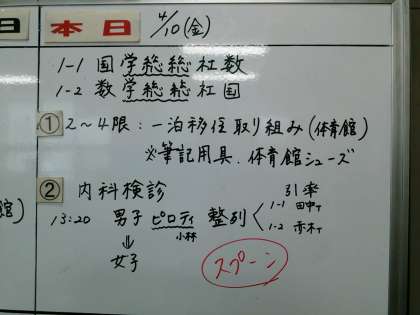 日
本日 4/10(金)
1-1 国学総総社数
1-2 数学総総社国
① 2~4限:一泊移住取り組み(体育館)
※筆記用具.体育館シューズ
館)
② 内科検診
引率
13:20 男子 ピロティ 整列 < 1-1 田中T
小林
1-2 赤木T
⇓
女子
スプーン